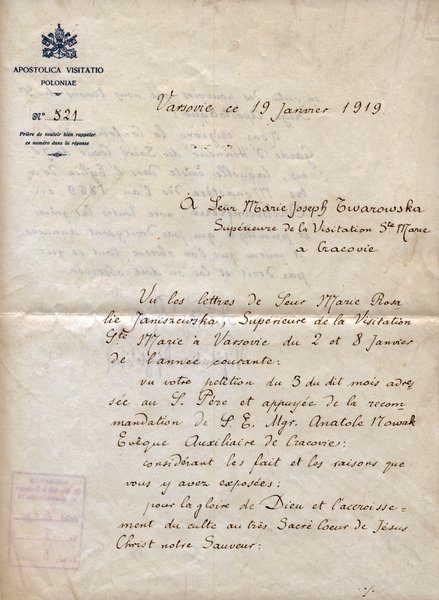 APOSTOLICA VISITATIO
POLONIAE
Nº 521
Prière de vouloir bien rappeler
ce numéro dans la réponse
Varsovie, ce 19 Janvier 1919.
A Seur Marie Joseph Twarowska
Supérieure de la Visitation Ste Marie
a Cracovie
Vu les lettres de Seur Marie Rosa
lie Janiszewska, Supérieure de la Visitation
Ste Marie à Varsovie du 2 et 8 Janvier
de l'année courante;
vu votre petition du 3 du dit mois adres
sée au S. Père et appuyée de la recom
mandation de S. E. Mgr. Anatole Nowak
Evêque Auxiliaire de Cracovie;
considérant les fait et les raisons que
vous y avez exposées;
pour la gloire de Dieu et l'accroisse-
ment du culte au très Sacré Coeur de Jésus
Christ notre Sauveur:
./.